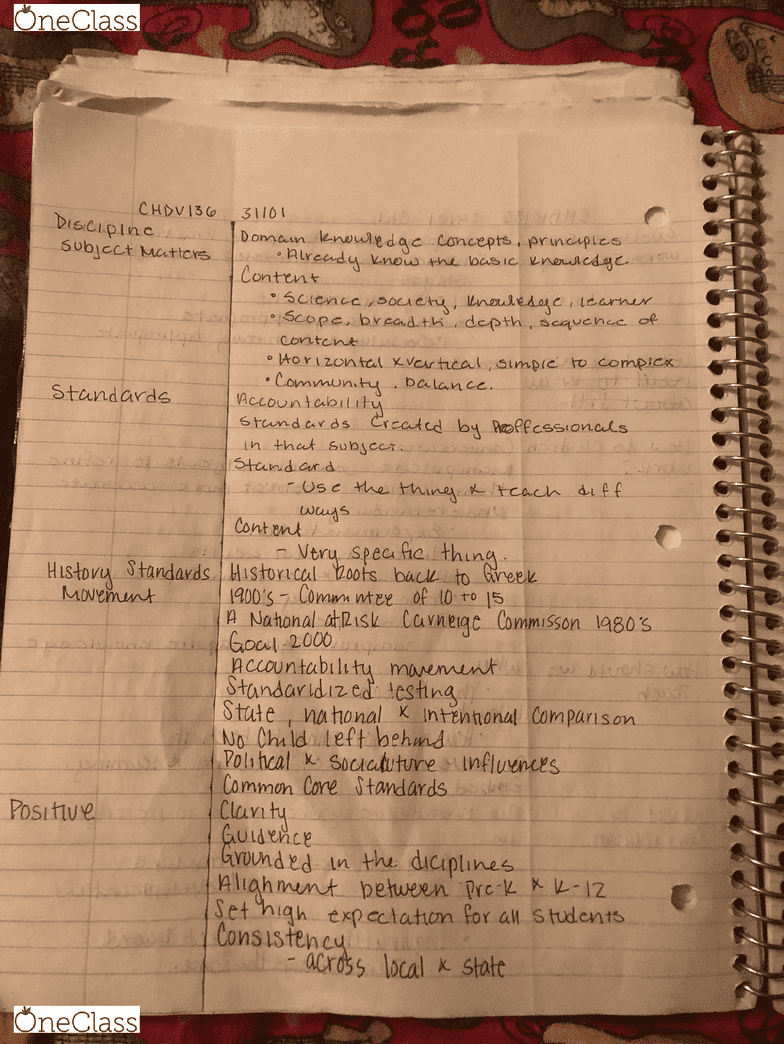 OneClass
CHDV136 31101
Discipline
Subject Matters
Domain knowledge concepts, principles
• Already know the basic knowledge.
Content
• Science, society, knowledge, learner
• Scope, breadth, depth, sequence of
content
• Horizontal x vertical, simple to complex
• Community, balance.
Standards
Accountability
Standards created by Proffessionals
in that subject.
Standard
- Use the thing x teach diff
ways
Content
- Very specific thing.
History Standards
Movement
Historical Roots back to Greek
1900's - Committee of 10 to 15
A National at Risk Carneige Commisson 1980's
Goal 2000
Accountability movement
Standaridized testing
State, national x intentional comparison
No Child left behind
Political x influences
Common Core Standards
Positive
Clarity
Guidence
Grounded in the diciplines
Alignment between pre-k x k-12
Set high expectation for all students
Consistency
- across local x state
OneClass